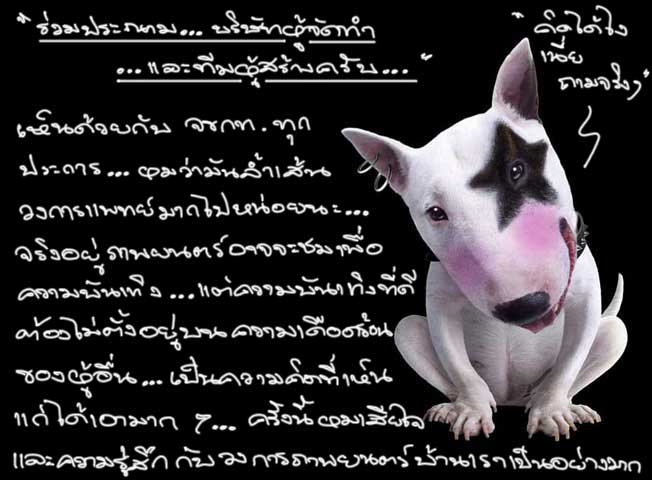 "ร่วมประณาม... บริษัทผู้จัดทำ
...และทีมผู้สร้างครับ..."
"คิดได้ไง
เนี่ย
ถามจริงๆ"
เห็นด้วยกับ จขกท. ทุก
ประการ... ผมว่ามันล้ำเส้น
วงการแพทย์มากไปหน่อยนะ...
จริงอยู่ ภาพยนตร์อาจจะชมเพื่อ
ความบันเทิง... แต่ความบันเทิงที่ดี
ต้องไม่ตั้งอยู่บนความเดือดร้อน
ของผู้อื่น... เป็นความคิดที่เห็น
แก่ได้เอามาก ๆ... ครั้งนี้ผมเสียใจ
และความรู้สึก กับ วงการภาพยนตร์บ้านเราเป็นอย่างมาก